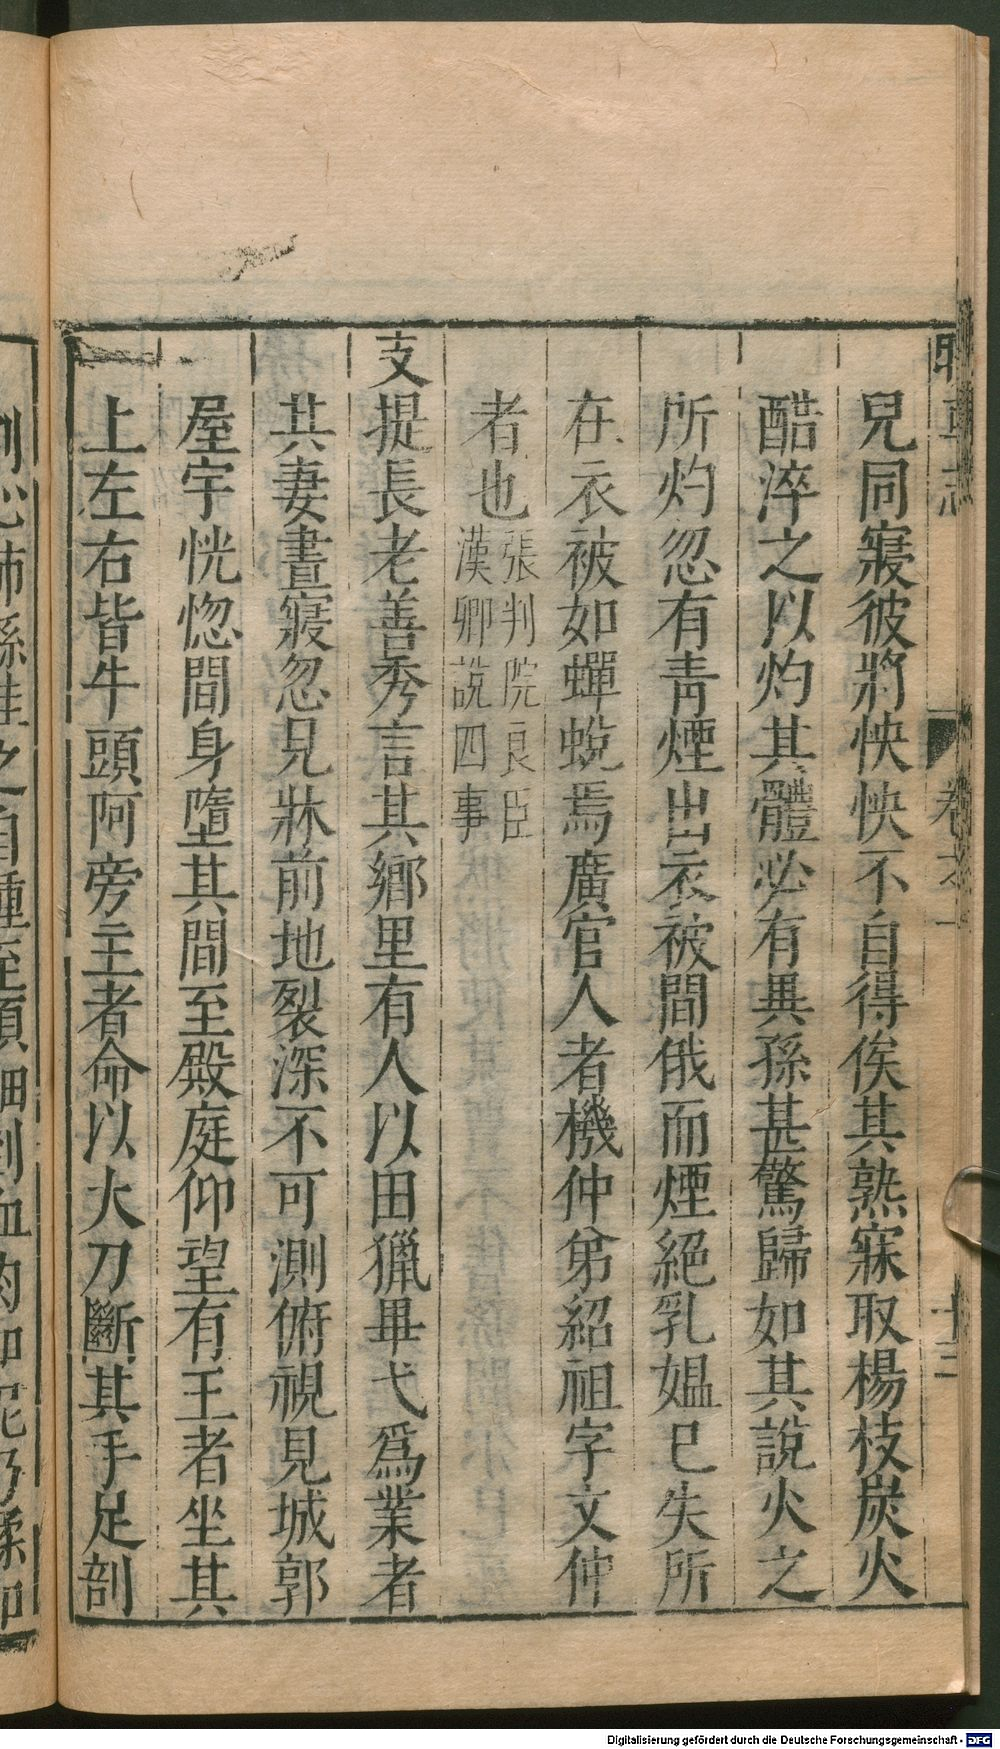 兒同寢彼將怏怏不自得俟其熟寐取楊枝炭火
酷淬之以灼其體必有異孫甚驚歸如其說火之
所灼忽有青煙出衣被間俄而煙絕乳媼已失所
在衣被如蟬蛻焉廣官人者機仲弟紹祖字文仲
者也張判院良臣
漢卿說四事
支提長老善秀言其鄉里有人以田獵畢弋爲業者
其妻晝寢忽見牀前地裂深不可測俯視見城郭
屋宇恍惚間身墮其間至殿庭仰望有王者坐其
上左右皆牛頭阿旁主者命以大刀斷其手足剖
Digitalisierung gefördert durch die Deutsche Forschungsgemeinschaft - DFG